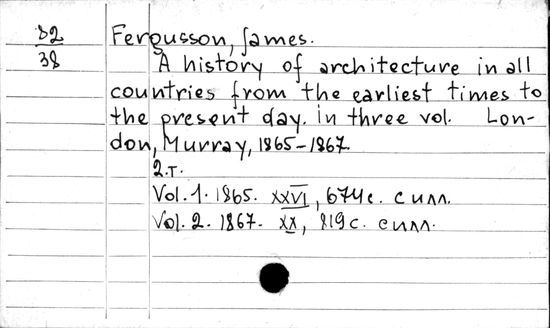 82 Fergusson, James.
38 A history of architecture in all
countries from the earliest times to
the present day. in three vol. Lon-
don, Murray, 1865-1867
2.т.
Vol. 1. 1865. XXVI, 674с. с илл.
Vol. 2. 1867. XX, 819с. с илл.